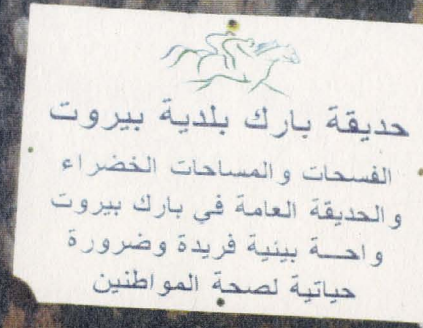 حديقة بارك بلدية بيروت
الفسحات والمساحات الخضراء
والحديقة العامة في بارك بيروت
واحـة بيئية فريدة وضرورة
حياتية لصحة المواطنين